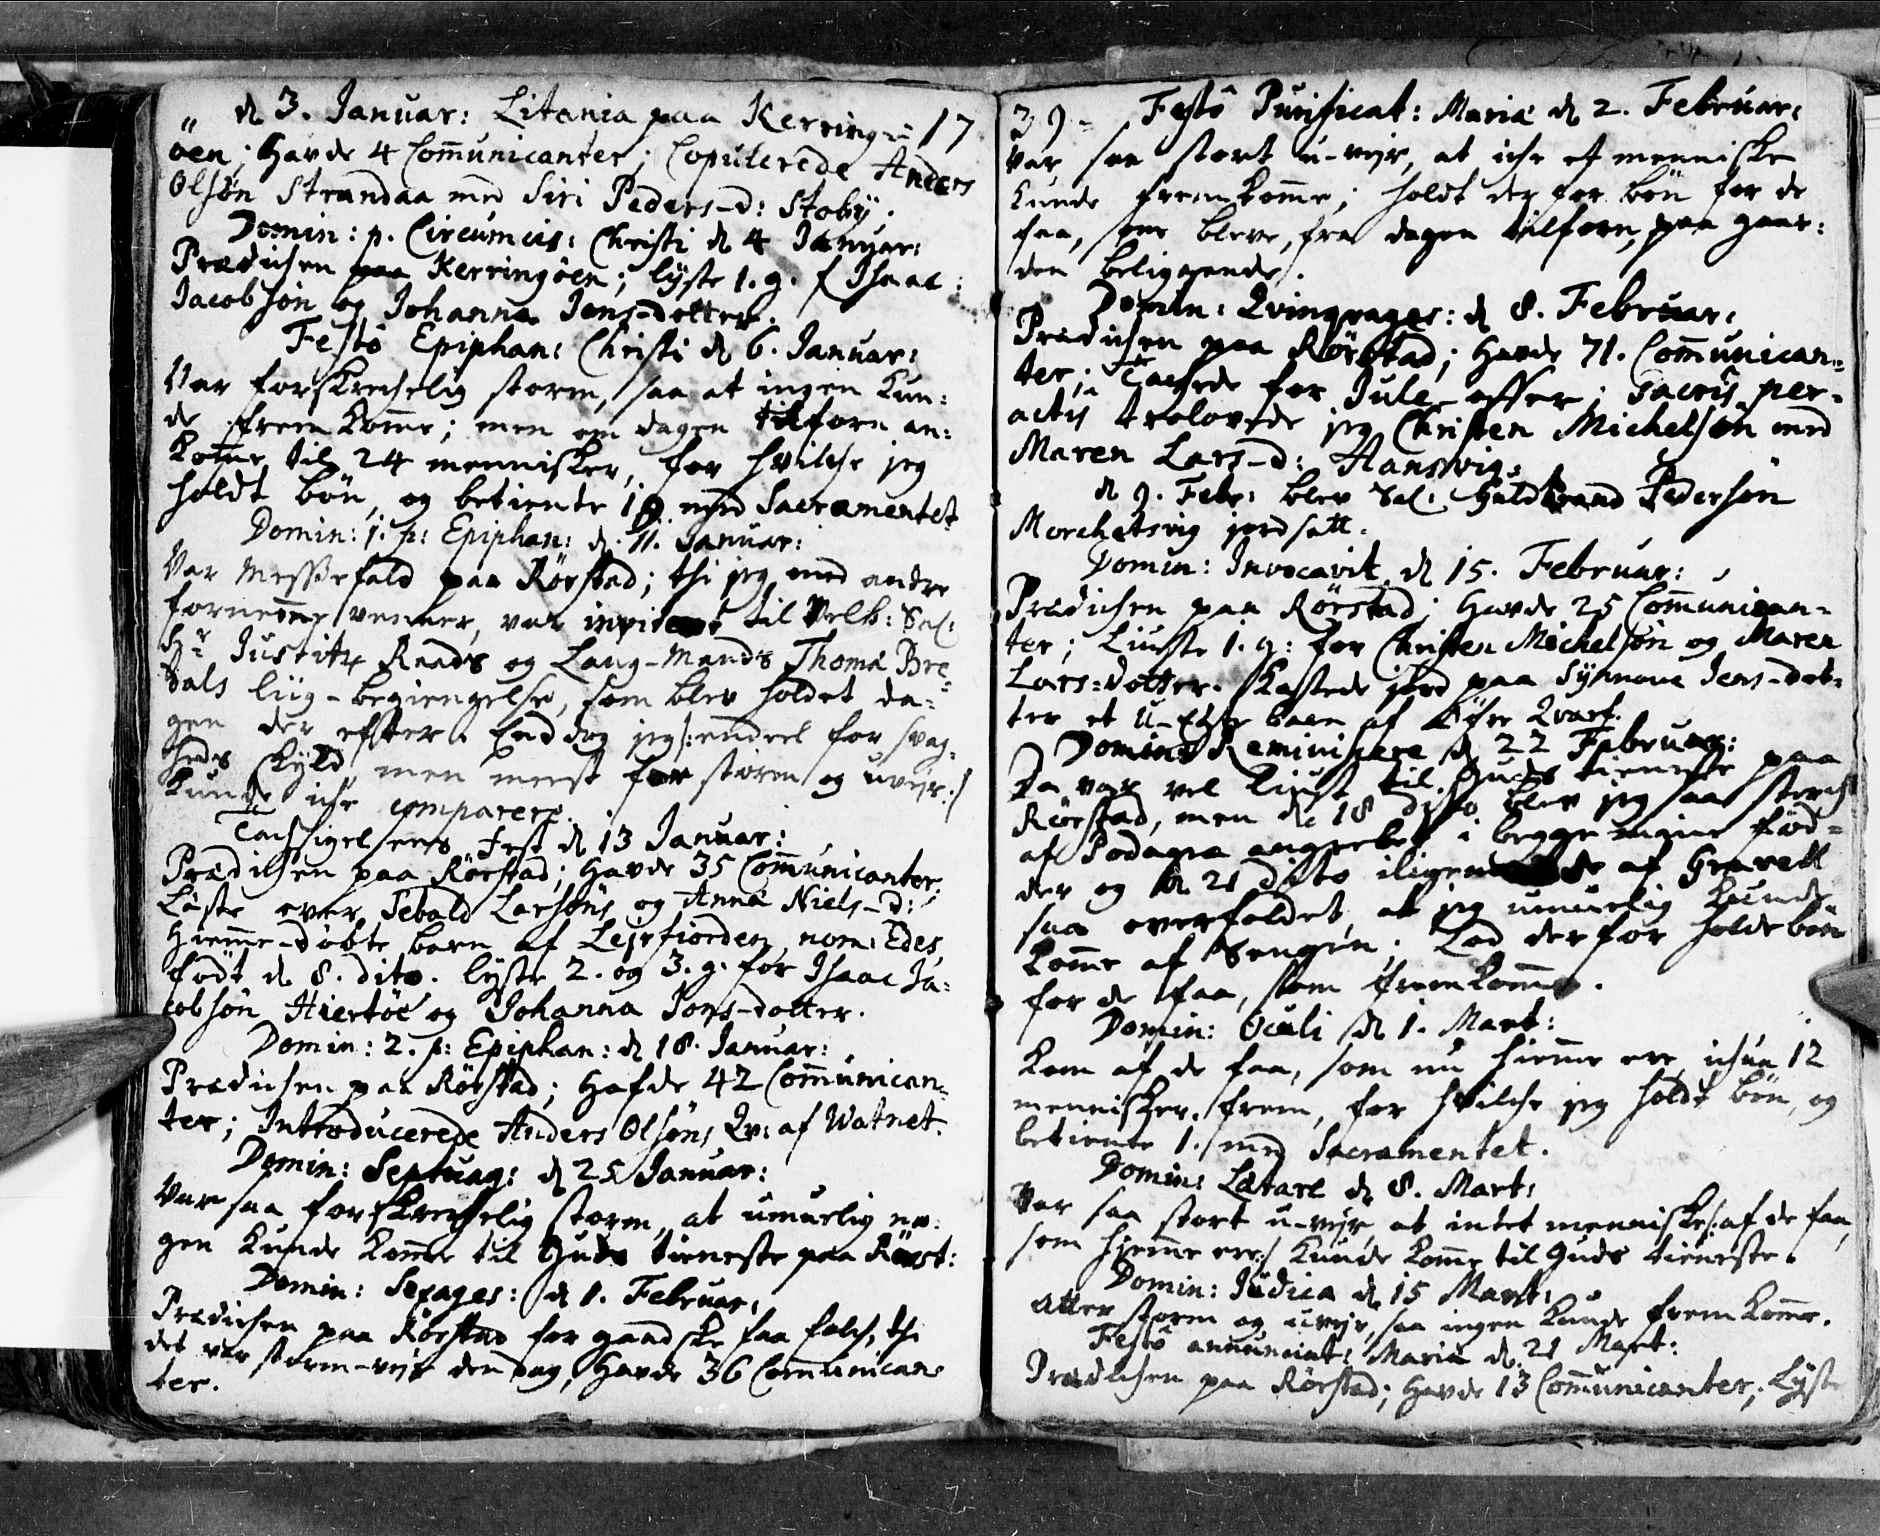 d 3. Januar: Litania paa Kerring- 17
öen; Havde 4 Com̄unicanter; Copulerede Anders
Olsøn Strandaa med Siri Peders-d: Støbÿ.
Domin: p. Circumcis: Christi d 4 Januar:
Prædichen paa Kerringöen; lÿste 1. g. f Isaac
Jacobsøn og Johanna Jens-dotter.
Festô Epiphan: Christi d 6. Januar:
Var forskrechelig storm, saa at ingen kun:
de frem kom̄e; men om dagen tilforn an:
kom̄e til 24 mennisker, for hvilche jeg
holdt bön, og betiente 19 med Sacramentet
Domin: 1. p: Epiphan: d. 11. Januar:
Var Messefald paa Rörstad; thi jeg med andre
fornem̄e venner, var inviteret til Velb: Sal:
Hr Justitz Raads og Laug-Mands Thomæ Bre-
dals liig-begiengelse, som blev holdet da-
gen der efter. End dog jeg /: endeel for svag-
heds skÿld, men meest for storm og uvejr :/
kunde iche comparere.
Tachsigelsens Fest d 13 Januar:
Prædichen paa Rörstad; Havde 35 Com̄unicanter;
Læste over Sebald Larsøns og Anna Niels-D:
Hiem̄e-döbte barn af Lejrfiorden, nom: Edes,
födt d. 8. dito. lÿste 2. og 3. g. for Isaac Ja-
cobsøn Hiertöe og Johanna Jens-dotter.
Domin: 2. p: Epiphan: d 18. Januar:
Prædichen paa Rörstad; Hafde 42 Com̄unican-
ter; Introducerede Anders Olsøns Qv: af Watnet.
Domin: Septuag: d 25 Januar:
Var saa forskrechelig storm, at umuelig no-
gen kunde kom̄e til Guds tieneste paa Rörst:
Domin: Sexages: d 1. Februar:
Prædichen paa Rörstad for gandske faa folch, thi
det var storm-vejr den dag, Havde 36 Com̄unican-
ter.
39- Festô Purificat: Mariæ d 2. Februar:
Var, saa stort u-vejr, at iche et menniske
kunde fremkom̄e; holdt derfor bön for de
faa, som bleve, fra dagen tilforn, paa gaar:
den beliggende.
Domin: Qvinqvages: d 8. Februar:
Prædichen paa Rörstad; Havde 71. Com̄unican-
ter; Tachede for Jule-offer; Sacris per-
actis trolovede jeg Christen Michelsøn med
Maren Lars-d: Hansvig:
d 9. Febr: blev Sal: Guldbrand Pedersøn
Morchetsvig jordsatt.
Domin: Invocavit d 15. Februar:
Prædichen paa Rörstad; Havde 25 Com̄unican-
ter; Liuste 1. g: for Christen Michelsøn og Maren
Lars-dotter. Kastede jord paa Sÿnnove Jens-dot-
ter et U-Egte barn af Qvarf.
Domin: Reminiscere d 22 Februar:
Da var vel liust til Guds tieneste paa
Rörstad, men d. 18 dito blev jeg saa sterch
af Podagra angrebet i begge mine föd-
der og d 21 dito af Gravell
saa overfaldet, at jeg umuelig kunde
kom̄e af Sengen; Lod derfor holde bön
for de faa, som fremkom̄e.
Domin: Oculi d 1. Mart:
Kom af de faa, som nu hiem̄e ere, ichun 12
mennisker frem, for hvilche jeg holdt bön, og
betiente 1. med Sacramentet.
Domin: Lætare d 8. Mart:
Var saa stort u-vejr, at intet menniske /: af de faa,
som hjem̄e ere :/ kunde kom̄e til Guds tieneste.
Domin: Judica d. 15 Mart:
Atter storm og uvejr, saa ingen kunde frem kom̄e.
Festô annunciat: Mariæ d. 21 Mart:
Prædichen paa Rörstad; Havde 13 Com̄unicanter; Lÿste